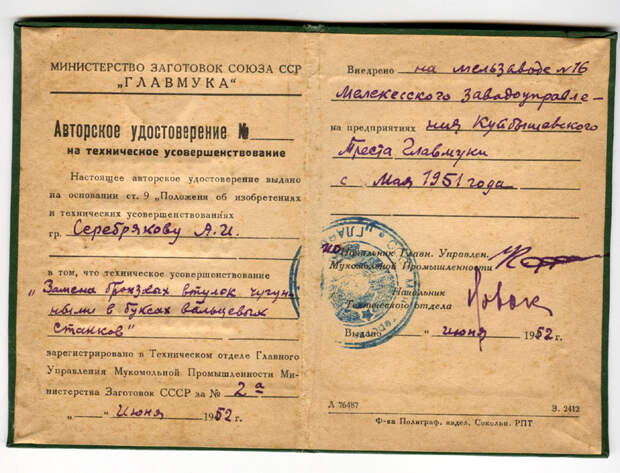 МИНИСТЕРСТВО ЗАГОТОВОК СОЮЗА ССР
„ГЛАВМУКА“
Авторское удостоверение №
на техническое усовершенствование
Настоящее авторское удостоверение выдано
на основании ст. 9 „Положени об изобретениях
и технических усовершенствованиях
гр. Серебрякову А.И.
в том, что техническое усовершенствование
"Замена бронзовых втулок чугун-
ными в буксах вальцевых
станков"
зарегистрировано в Техническом отделе Главного
Управления Мукомольной Промышленности Ми-
нистерства Заготовок СССР за № 2а
„ “ Июня 1952г.
Внедрено на мельзаводе №16
Мелекесского Заводоуправле-
на предприятиях ния Куйбышевского
Треста Главмуки
с Мая 1951 года
Начальник Главн. Управлен.
Мукомольной Промышленности
Начальник
Технического отдела
Выдано „ “ июня 1952г.
Л 76487 З. 2412
Ф-ка Полиграф. издел. Сокольн. РПТ